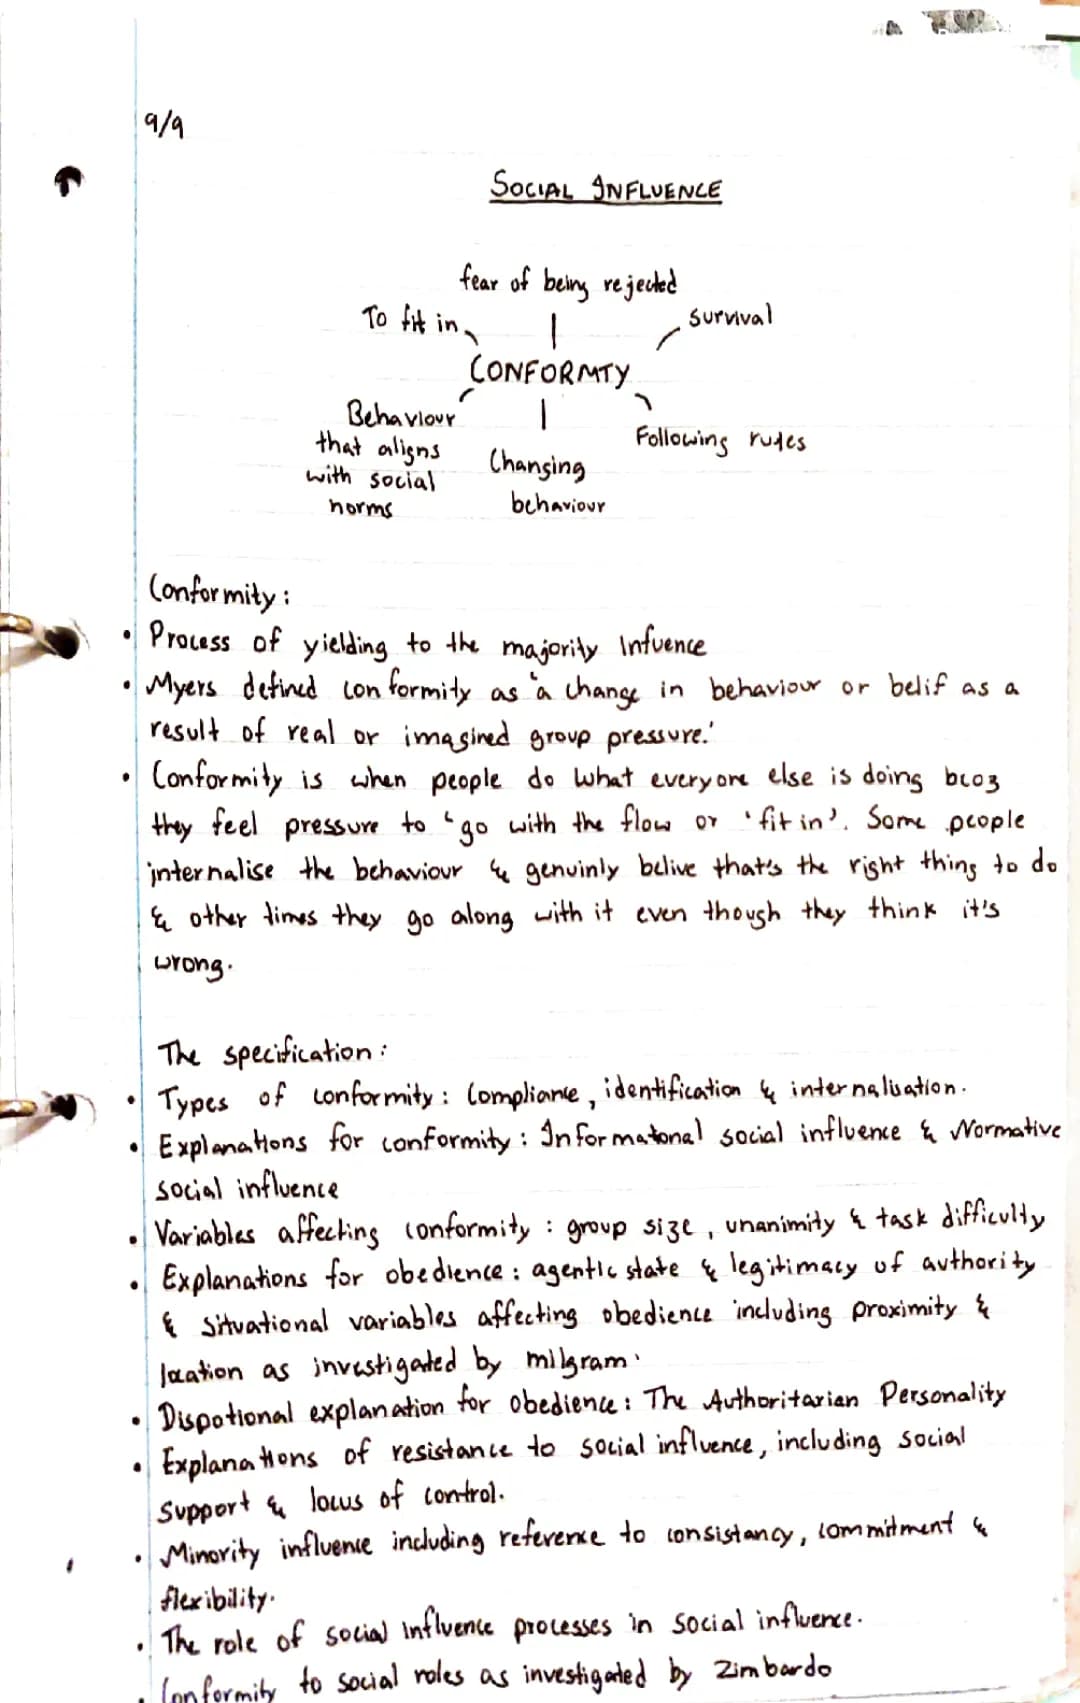 9/9
SOCIAL INFLUENCE
fear of being rejected
To fit in
Survival
CONFORMTY
Behaviour
that aligns
with social
norms
Changing
behaviour
Following rules
Conformity:
• Process of yielding to the majority Infuence
• Myers defined conformity as 'a change in behaviour or belif as a
result of real or imagined group pressure.'
• Conformity is when people do what everyone else is doing bcoz
they feel pressure to 'go with the flow or 'fit in'. Some people
internalise the behaviour & genuinly belive that's the right thing to do
& other times they go along with it even though they think it's
wrong.
The specification:
• Types of conformity: Compliance, identification & internalisation.
• Explanations for conformity: Informatonal social influence & Normative
social influence
• Variables affecting conformity: group size, unanimity & task difficulty
• Explanations for obedience: agentic state & legitimacy of authority
& Situational variables affecting obedience including proximity &
location as investigated by milgram.
• Dispotional explanation for obedience: The Authoritarian Personality
• Explanations of resistance to social influence, including social
Support & locus of control.
• Minority influence including reference to consistancy, commitment &
flexibility.
• The role of social influence processes in social influence.
• Conformity to social roles as investigated by Zimbardo